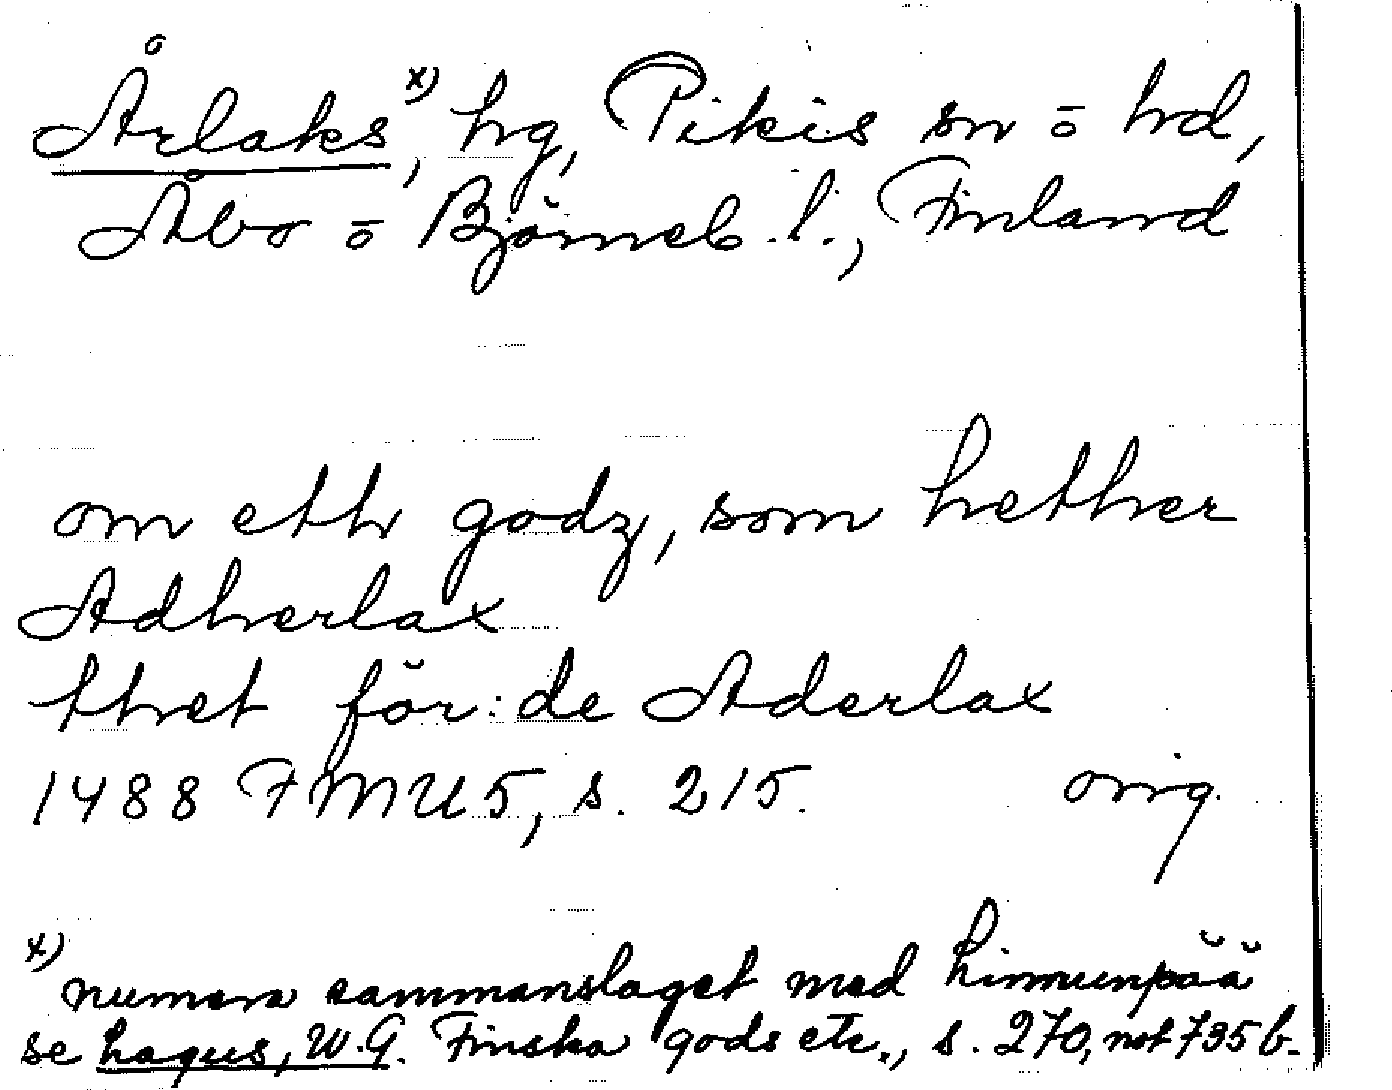 Årlaks x), hg, Pikis sn o hd,
Åbo o Björneb. l., Finland
om eth godz, som hether
Adherlax
thet för: de Aderlax
1488 FMU 5, s. 215. orig.
x) numera sammanslaget med
se hagus, W.G. Finska gods etc., s. 270, not 735 b.